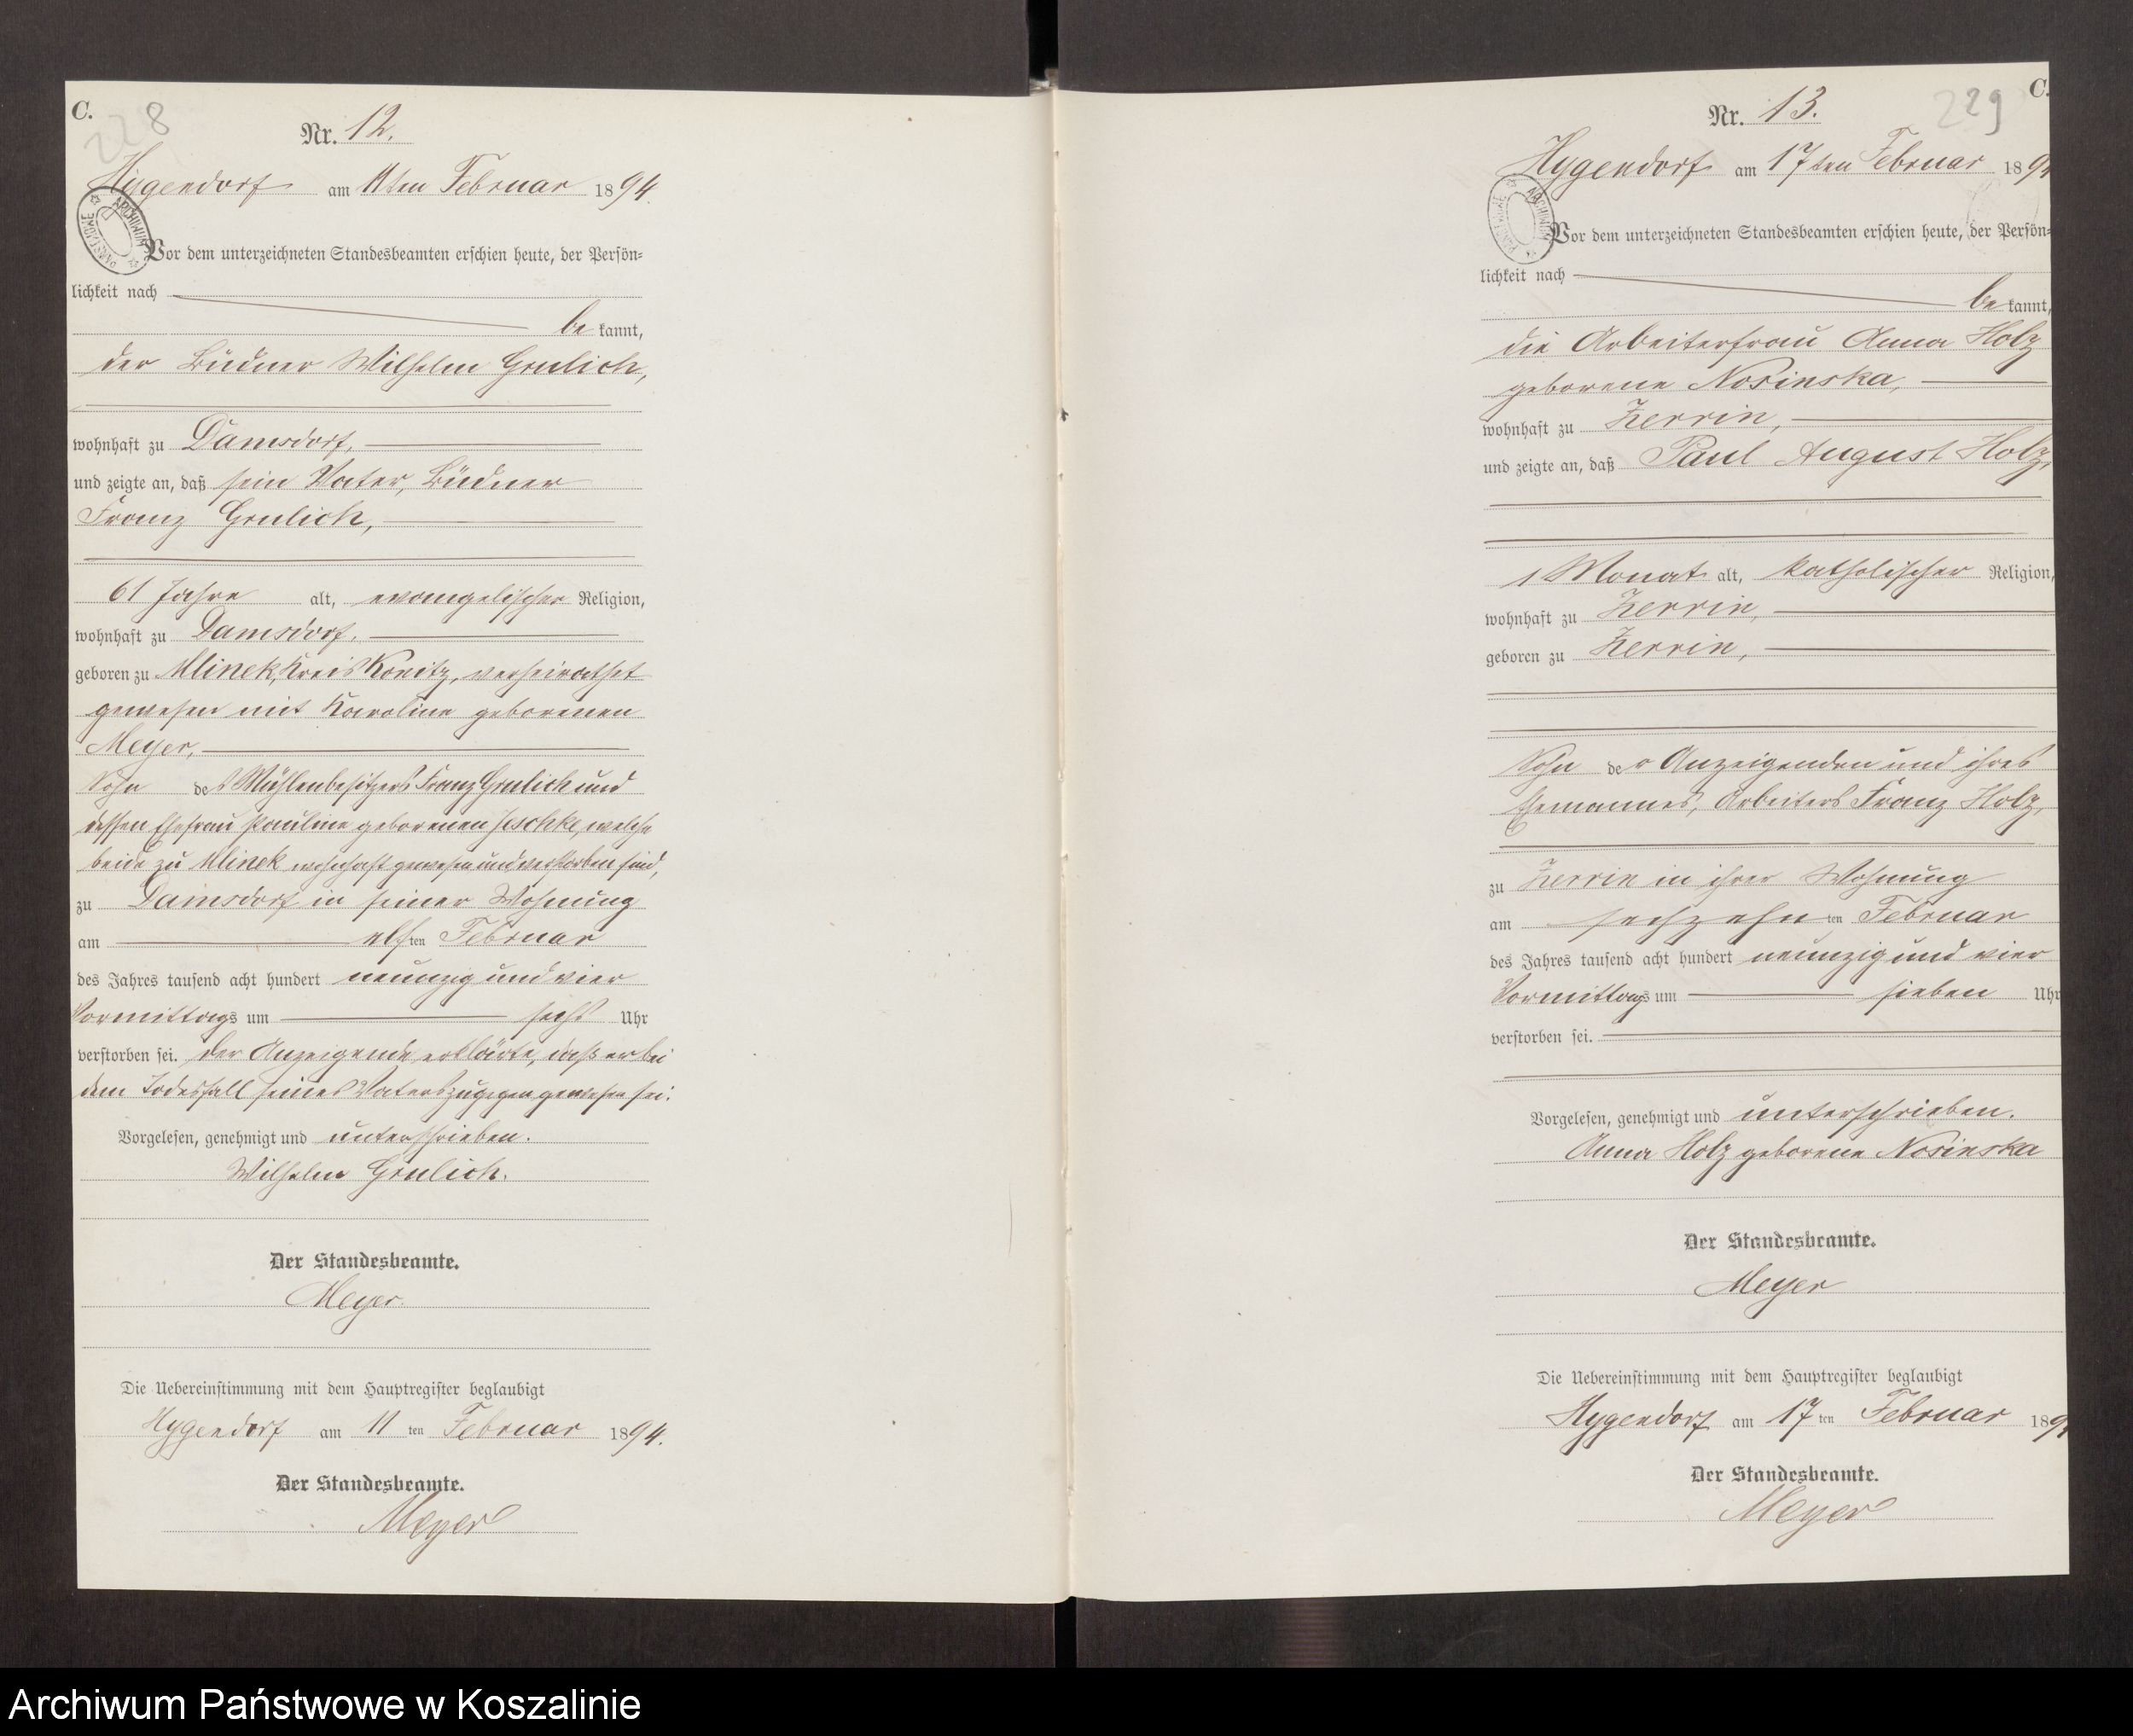 C.
228
Nr. 12.
Hygendorf am 11ten Februar 1894.
ARCHIWUM PAŃSTWOWE
Vor dem unterzeichneten Standesbeamten erschien heute, der Persön-
lichkeit nach
bekannt,
der Büdner Wilhelm Grulich,
wohnhaft zu Damsdorf,
und zeigte an, daß sein Vater, Büdner
Franz Grulich,
61 Jahre alt, evangelischer Religion,
wohnhaft zu Damsdorf,
geboren zu Mlinek, Kreis Konitz, verheirathet
gewesen mit Karoline geborenen
Meyer,
Sohn des Mühlenbesitzers Franz Grulich und
dessen Ehefrau Pauline geborenen Jeschke, welche
beide zu Mlinek wohnhaft gewesen und verstorben sind,
zu Damsdorf in seiner Wohnung
am elften Februar
des Jahres tausend acht hundert neunzig und vier
Vormittags um sechs Uhr
verstorben sei. Der Anzeigende erklärte, daß er bei
dem Todesfall seines Vaters zugegen gewesen sei.
Vorgelesen, genehmigt und unterschrieben.
Wilhelm Grulich.
Der Standesbeamte.
Meyer.
Die Uebereinstimmung mit dem Hauptregister beglaubigt
Hygendorf am 11ten Februar 1894.
Der Standesbeamte.
Meyer
C.
229
Nr. 13.
Hygendorf am 17ten Februar 1894
ARCHIWUM PAŃSTWOWE
Vor dem unterzeichneten Standesbeamten erschien heute, der Persön-
lichkeit nach
bekannt,
die Arbeiterfrau Anna Holz
geborene Nosinska,
wohnhaft zu Zerrin,
und zeigte an, daß Paul August Holz,
1 Monat alt, katholischer Religion,
wohnhaft zu Zerrin,
geboren zu Zerrin,
Sohn der Anzeigenden und ihres
Ehemannes, Arbeiters Franz Holz,
zu Zerrin in ihrer Wohnung
am sechzehnten Februar
des Jahres tausend acht hundert neunzig und vier
Vormittags um sieben Uhr
verstorben sei.
Vorgelesen, genehmigt und unterschrieben.
Anna Holz geborene Nosinska
Der Standesbeamte.
Meyer
Die Uebereinstimmung mit dem Hauptregister beglaubigt
Hygendorf am 17ten Februar 1894
Der Standesbeamte.
Meyer
Archiwum Państwowe w Koszalinie